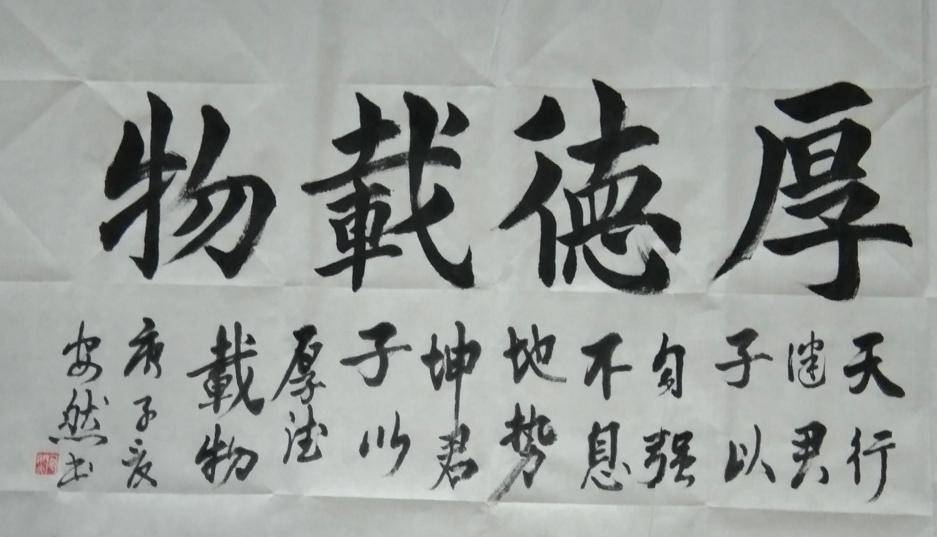 厚德載物
天行
健君
子以
自强
不息
地势
坤君
子以
厚德
載物
庚子夏
安然书